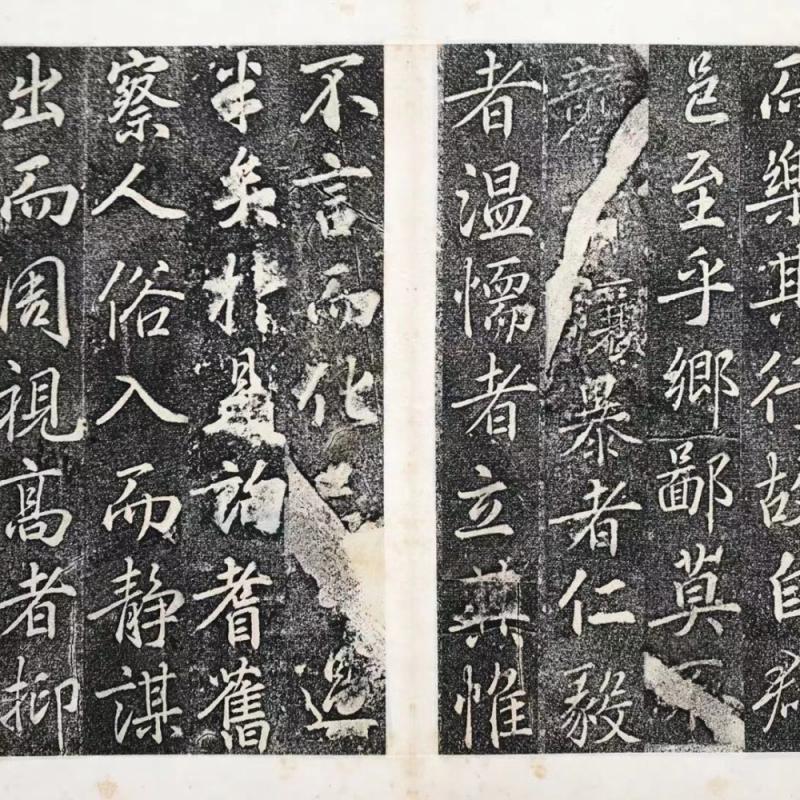 而樂其行故自郡
邑至乎鄉鄙莫不
競暴者仁毅
者温懦者立其惟
不言而化過
半矣於是詢耆舊
察人俗入而静謀
出而周視高者抑